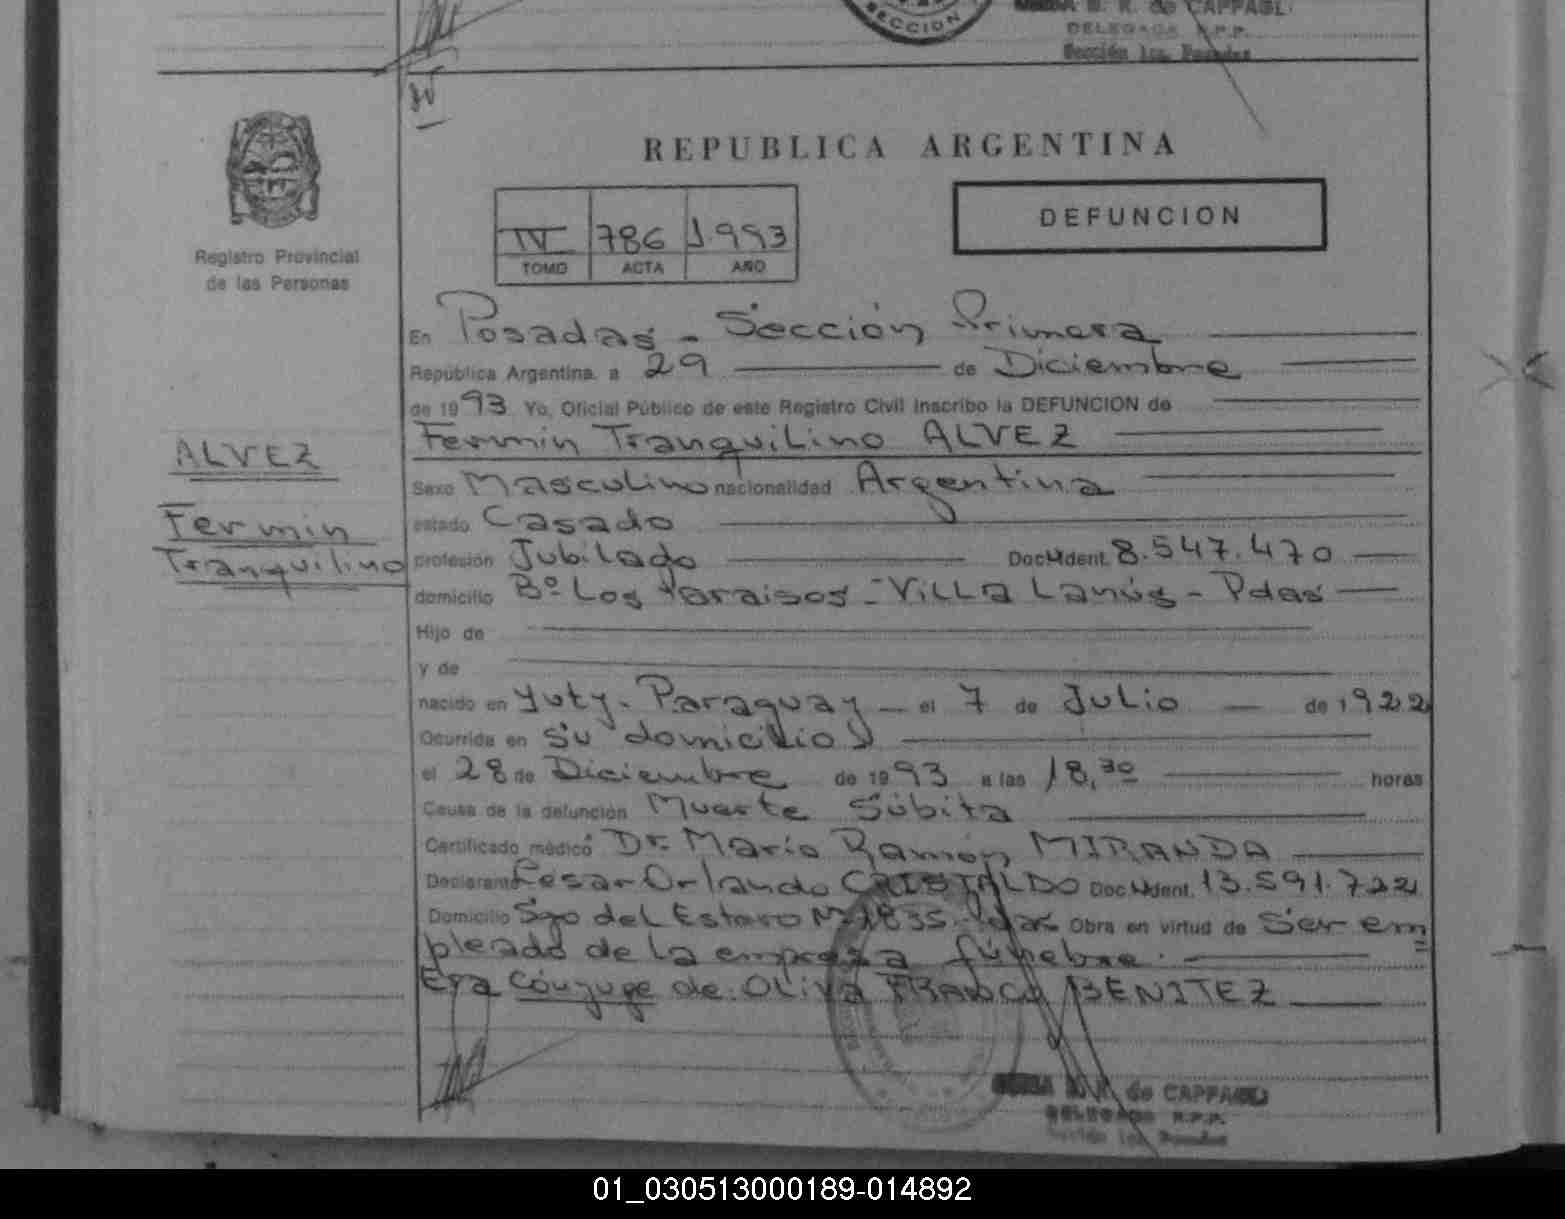 SECCION
de CAPPAGLI
DELEGADO R.P.P.
Sección 1ra. Posadas
REPUBLICA ARGENTINA
IV 786 1.993
TOMO ACTA AÑO
DEFUNCION
Registro Provincial
de las Personas
En Posadas - Sección Primera
República Argentina, a 29 de Diciembre
de 1993 Yo, Oficial Público de este Registro Civil Inscribo la DEFUNCION de
Fermin Tranquilino ALVEZ
ALVEZ
Fermin
Tranquilino
Sexo Masculino nacionalidad Argentina
estado Casado
profesión Jubilado Doc. Ident. 8.547.470
domicilio Bº Los Paraisos - Villa Lanús - Pdas
Hijo de
y de
nacido en Yuty - Paraguay el 7 de Julio de 1922
Ocurrida en su domicilio
el 28 de Diciembre de 1993 a las 18,30 horas
Causa de la defunción Muerte Súbita
Certificado médico Dr. Mario Ramón MIRANDA
Declarante Cesar Orlando CRISTALDO Doc. Ident. 13.591.722
Domicilio Sgo del Estero Nº 1835 Pdas Obra en virtud de Ser em=
pleado de la empresa fúnebre.
Era Cónyuge de: OLIVA FRANCO BENITEZ
de CAPPAGLI
DELEGADO R.P.P.
Sección 1ra. Posadas
01_030513000189-014892